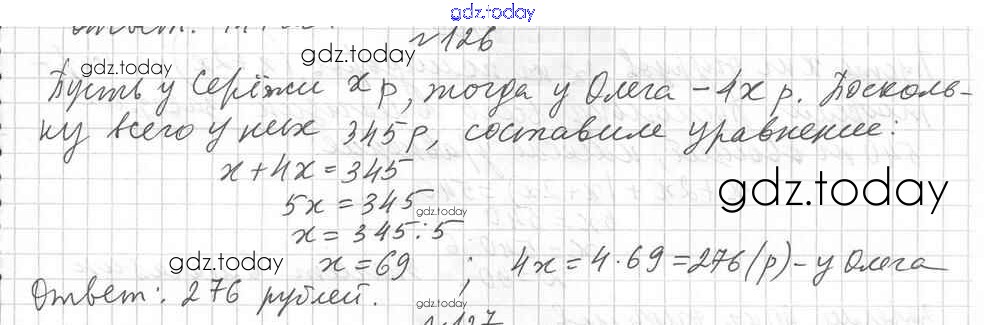 gdz.today
Ответ:
№126
gdz.today
gdz.today
Пусть у Серёжи x р, тогда у Олега - 4x р. Посколь-
ку всего у них 345 р, составим уравнение:
x+4x=345
gdz.today
5x=345
gdz.today
x=345:5
gdz.today
x=69 ; 4x=4·69=276(р)-у Олега
Ответ: 276 рублей.
gdz.today
№127